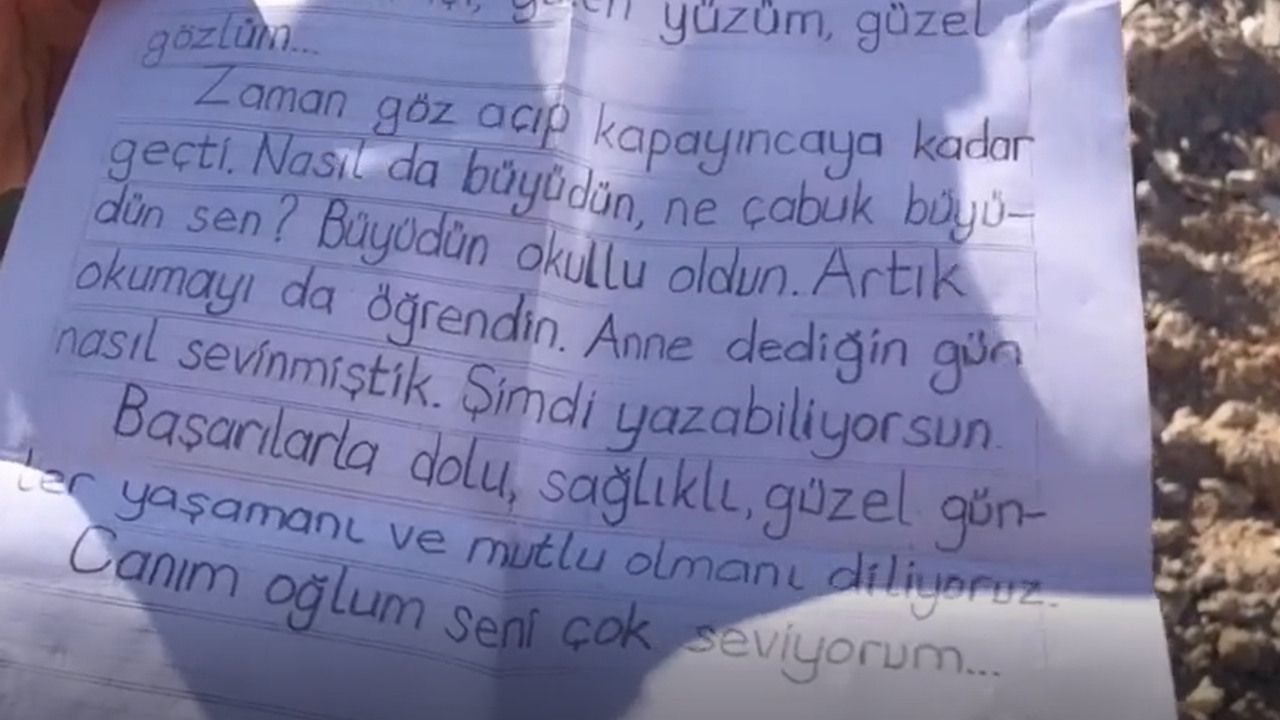 yüzüm, güzel
gözlüm...
Zaman göz açıp kapayıncaya kadar
geçti. Nasıl da büyüdün, ne çabuk büyü-
dün sen? Büyüdün okullu oldun. Artık
okumayı da öğrendin. Anne dediğin gün
nasıl sevinmiştik. Şimdi yazabiliyorsun.
Başarılarla dolu, sağlıklı, güzel gün-
ler yaşamanı ve mutlu olmanı diliyoruz.
Canım oğlum seni çok seviyorum...